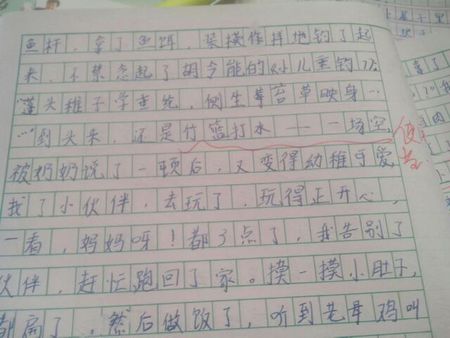 鱼杆，拿了鱼饵，装模作样地钓了起
来，不禁念起了胡令能的《小儿垂钓》
“蓬头稚子学垂纶，侧生莓苔草映身…
…”到头来，还是竹蓝打水——一场空
被奶奶说了一顿后，又变得幼稚可爱
找了小伙伴，去玩了，玩得正开心，
一看，妈妈呀！都3点了，我告别了
伙伴，赶忙跑回了家。摸一摸小肚子，
都扁了，然后做饭了，听到老母鸡叫